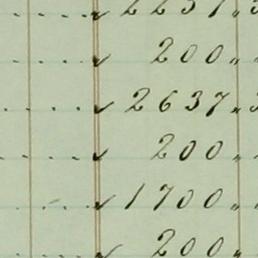 2237 "
✓ 200 "
✓ 2637 "
✓ 200 "
✓ 1700 "
✓ 200 "